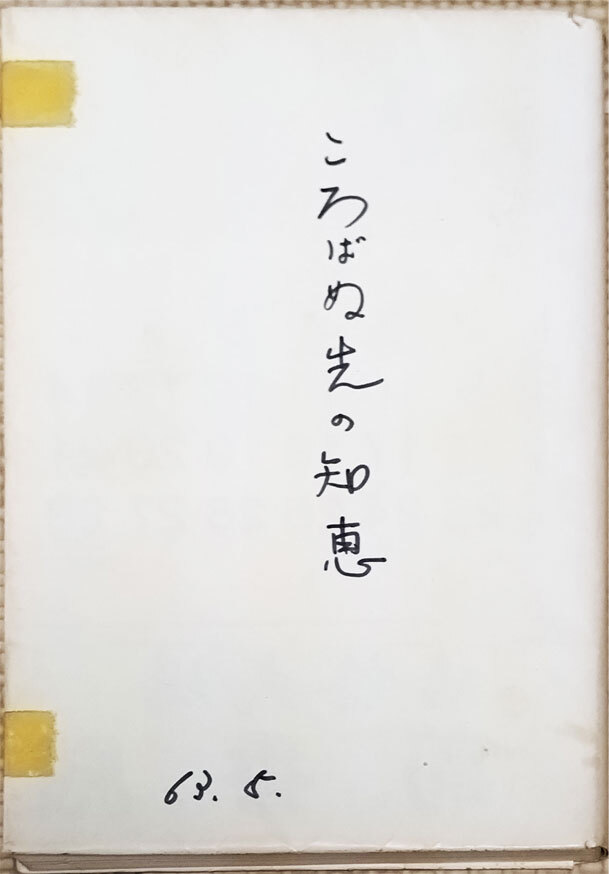 ころばぬ先の知恵
63. 5.